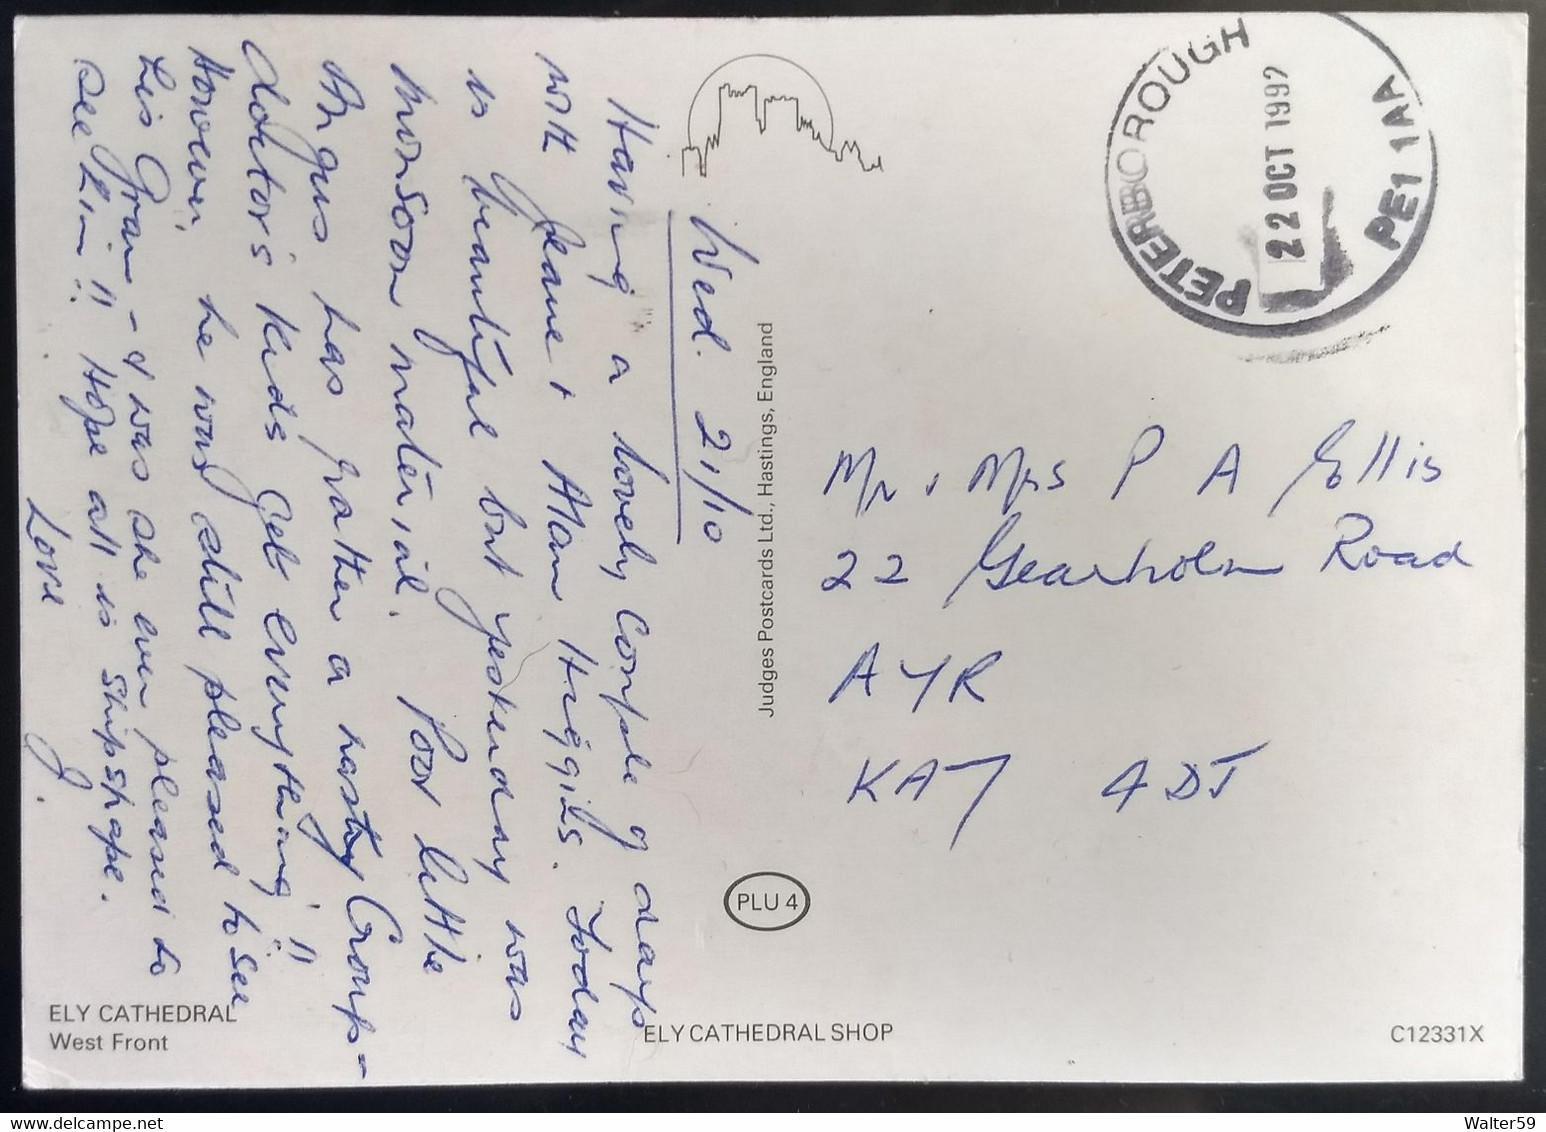 Wed. 21/10
Having a lovely couple of days
with Jeane & Alan Higgins. Today
is beautiful but yesterday was
monsoon material. Poor little
Angus has gotten a nasty Croup -
doctor's kids get everything!!
However, he was still pleased to see
his Gran - & was she ever pleased to
see him!! Hope all is shipshape.
Love
J.
Judges Postcards Ltd., Hastings, England
PETERBOROUGH
22 OCT 1992
PE1 1RA
Mr & Mrs P A Ellis
22 Gearholm Road
AYR
KA7 4DT
PLU 4
ELY CATHEDRAL
West Front
ELY CATHEDRAL SHOP
C12331X
Walter59